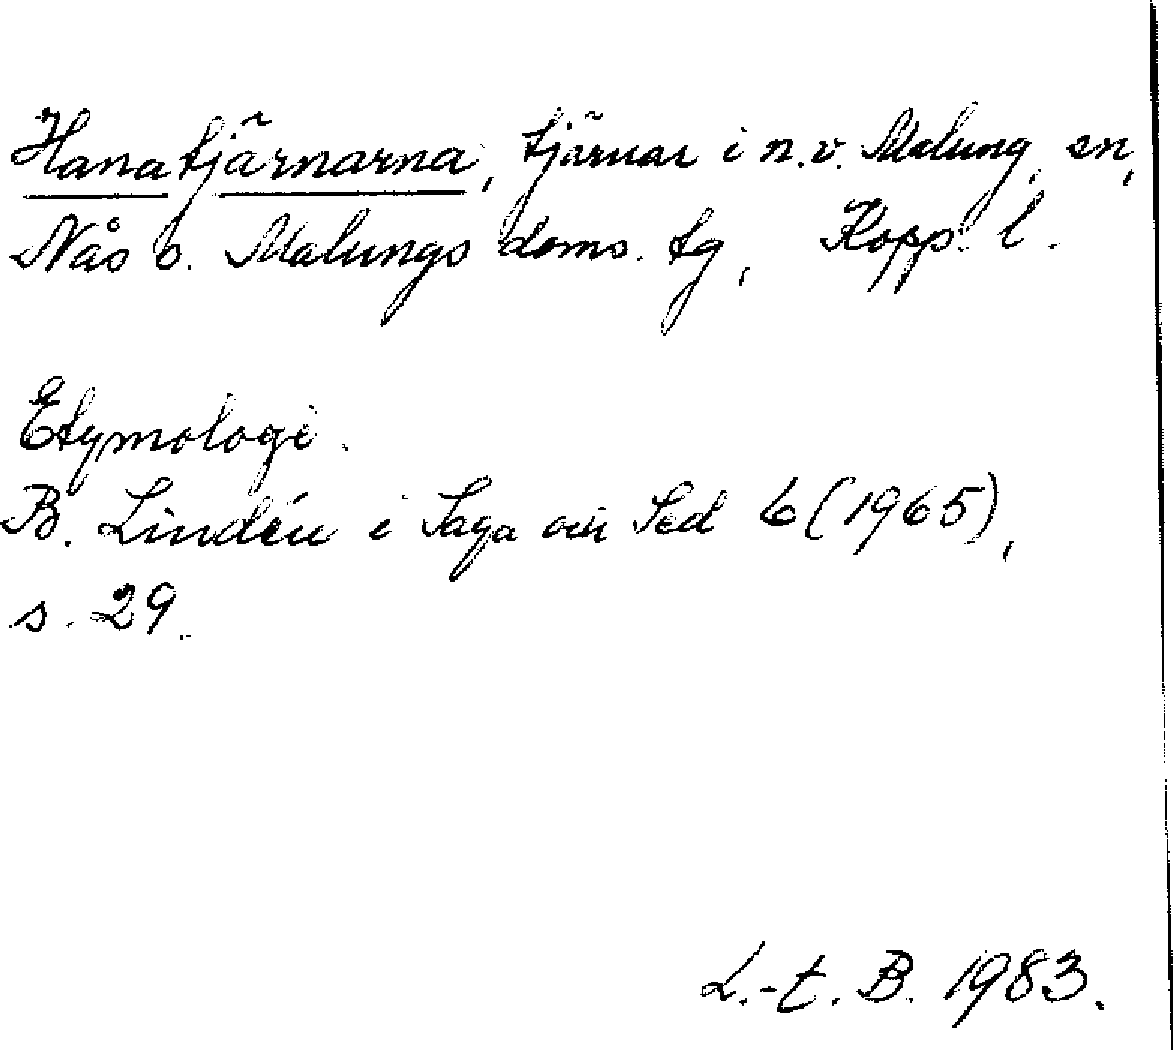 Hanatjärnarna, tjärnar i n.v. Malung, sn,
Nås o. Malungs doms. tg, Kopp. l.
Etymologi.
B. Lindén i Saga och Sed 6 (1965),
s. 29.
L.-t. B. 1983.